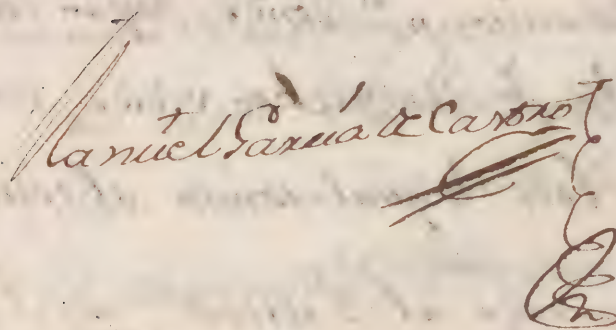 Manuel Garcia de Castro